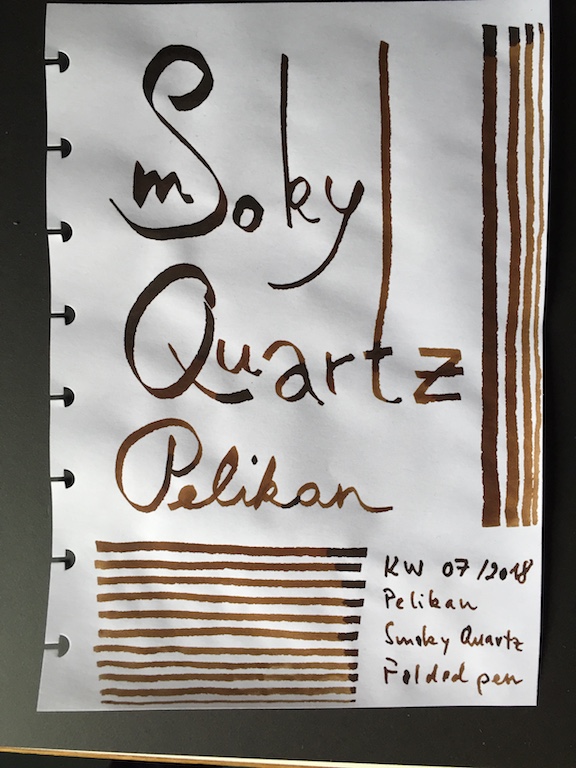 Smoky
Quartz
Pelikan
KW 07/2018
Pelikan
Smoky Quartz
Folded pen